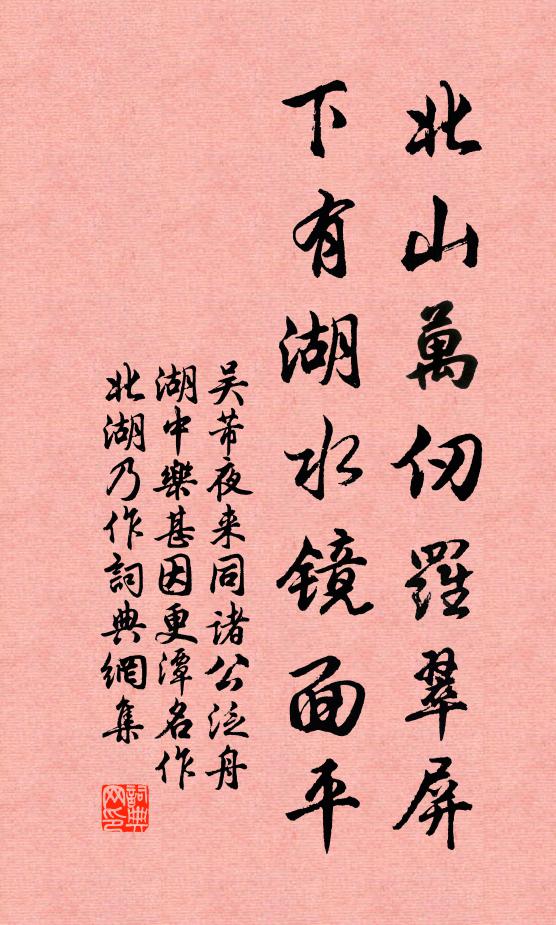 北山萬仞羅翠屏
下有湖水镜面平
吴芾夜来同諸公泛舟
湖中樂甚因更潭名作
北湖乃作詞典網集
詞典网印